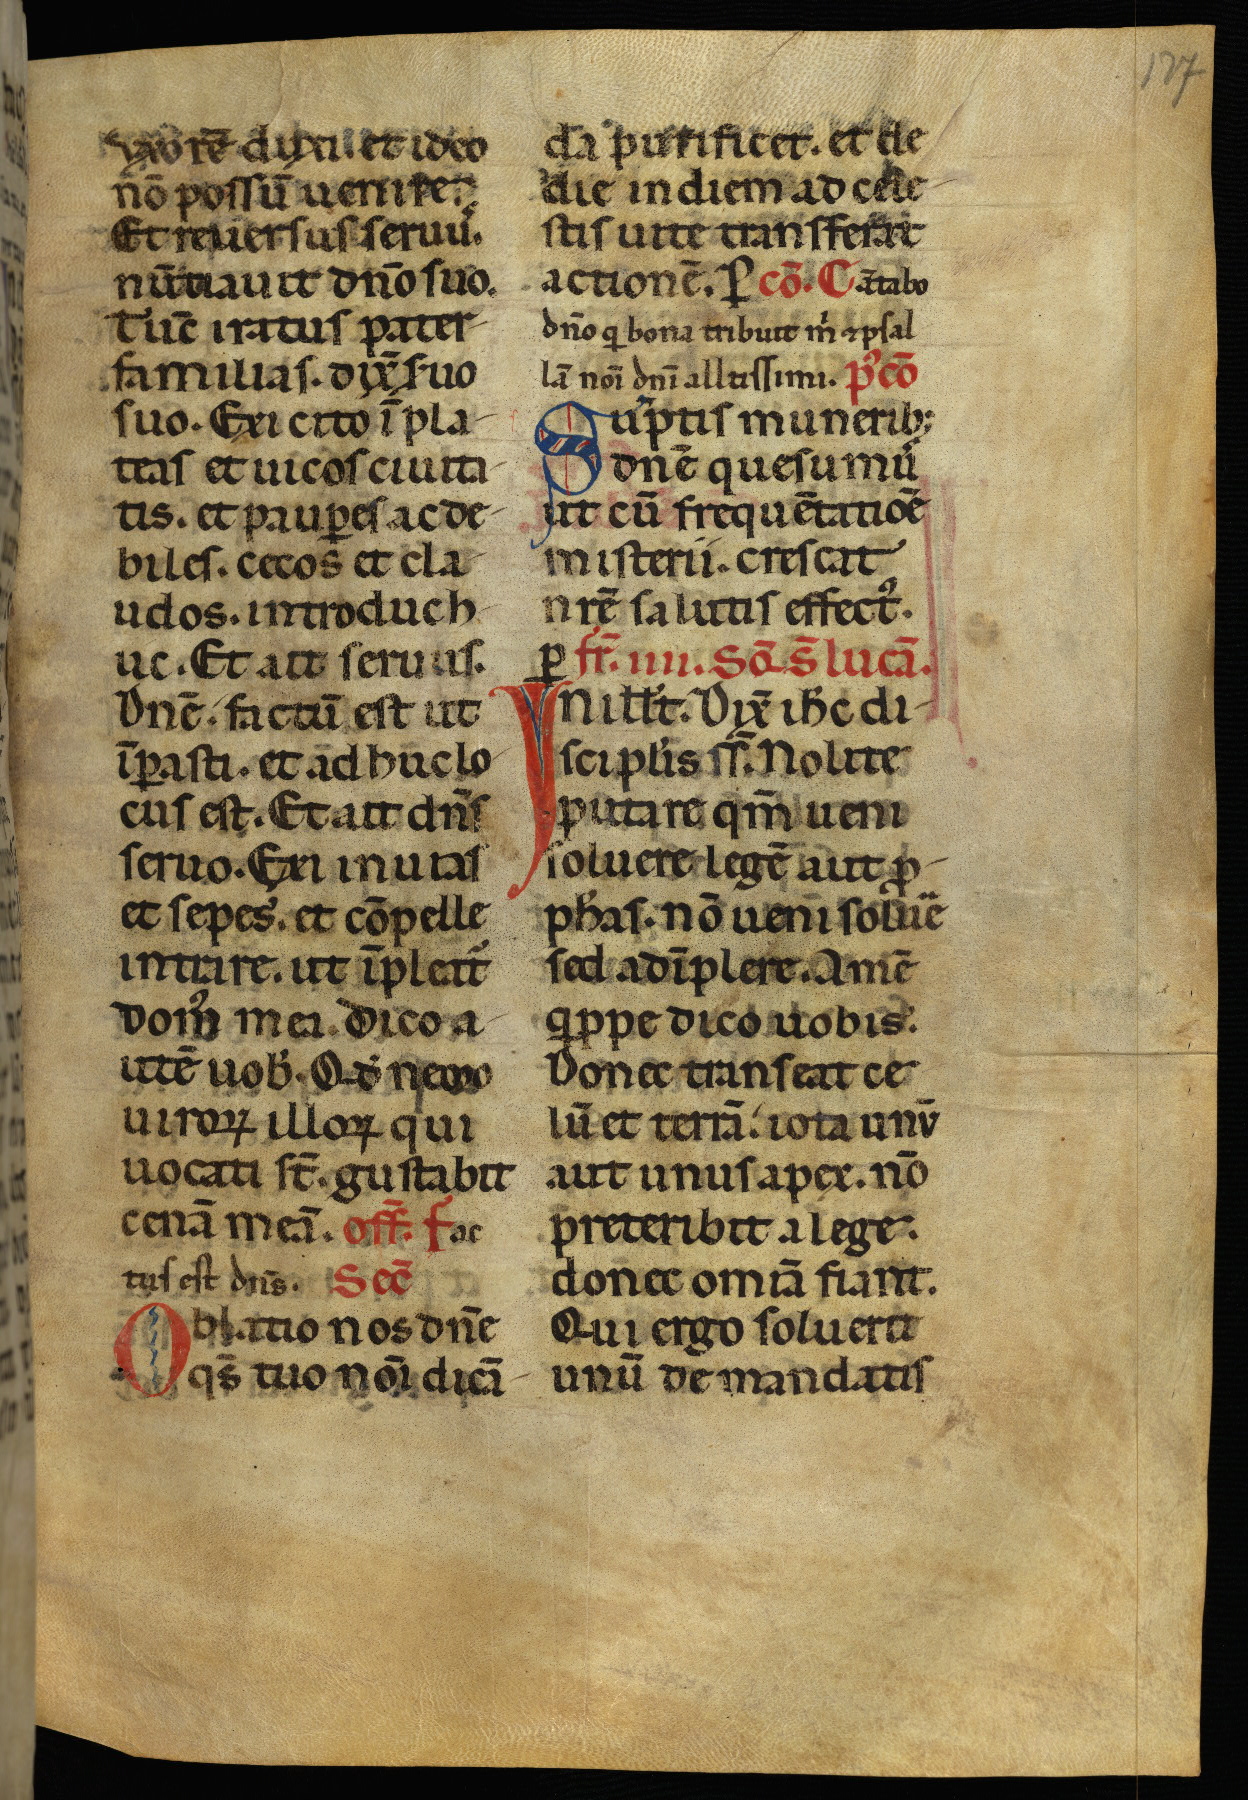 127
vxorē duxi. et ideo
nō possū uenire.
Et reuersus seruus.
nūtiauit dn̄o suo.
Tūc iratus pater
familias. dix̄ suo
suo. Exi cito ī pla-
teas et uicos ciuita-
tis. et paup̱es ac de-
biles. cecos et cla-
udos. introduc h
uc. Et ait seruus.
Dn̄e. factū est ut
īp̱asti. et adhuc lo-
cus est. Et ait dn̄s
seruo. Exi in uias
et sepes. et cōpelle
intrare. ut īpleat᷑
domꝰ mea. Dico a-
utē uob̄. Qd̄ nemo
uiroꝝ illoꝝ qui
uocati st̄. gustabit
cenā meā. off̄. Fac
tus est dn̄s. Sec̄
Oblatio nos dn̄e
qs̄ tuo noī dicā-
da purificet. et de
die in diem ad cele-
stis uite transferat
actionē. P̱ cō. Cātabo
dn̄o q̱ bona tribuit m̄ ⁊ psal
lā noī dn̄i altissimi. p̄cō
Sūptis munerib;
dn̄e quesumꝰ
ut cū frequētatiōe
misterii. crescat
nr̄e salutis effectꝰ.
p̱ fr̄. iiii. Sc̄d̄ S̄ lucā.
In ill̄ t̄. Dix̄ ih̄c di-
scipl̄is ss̄. Nolite
putare qm̄ ueni
soluere legē aut ꝓ-
ph̄as. nō ueni soluēe
sed adīplere. Amē
q̱ppe dico uobis.
Donec transeat ce
lū et terrā. iota unū
aut unus apex. nō
preteribit a lege.
donec omīa fiant.
Qui ergo soluerit
unū de mandatis